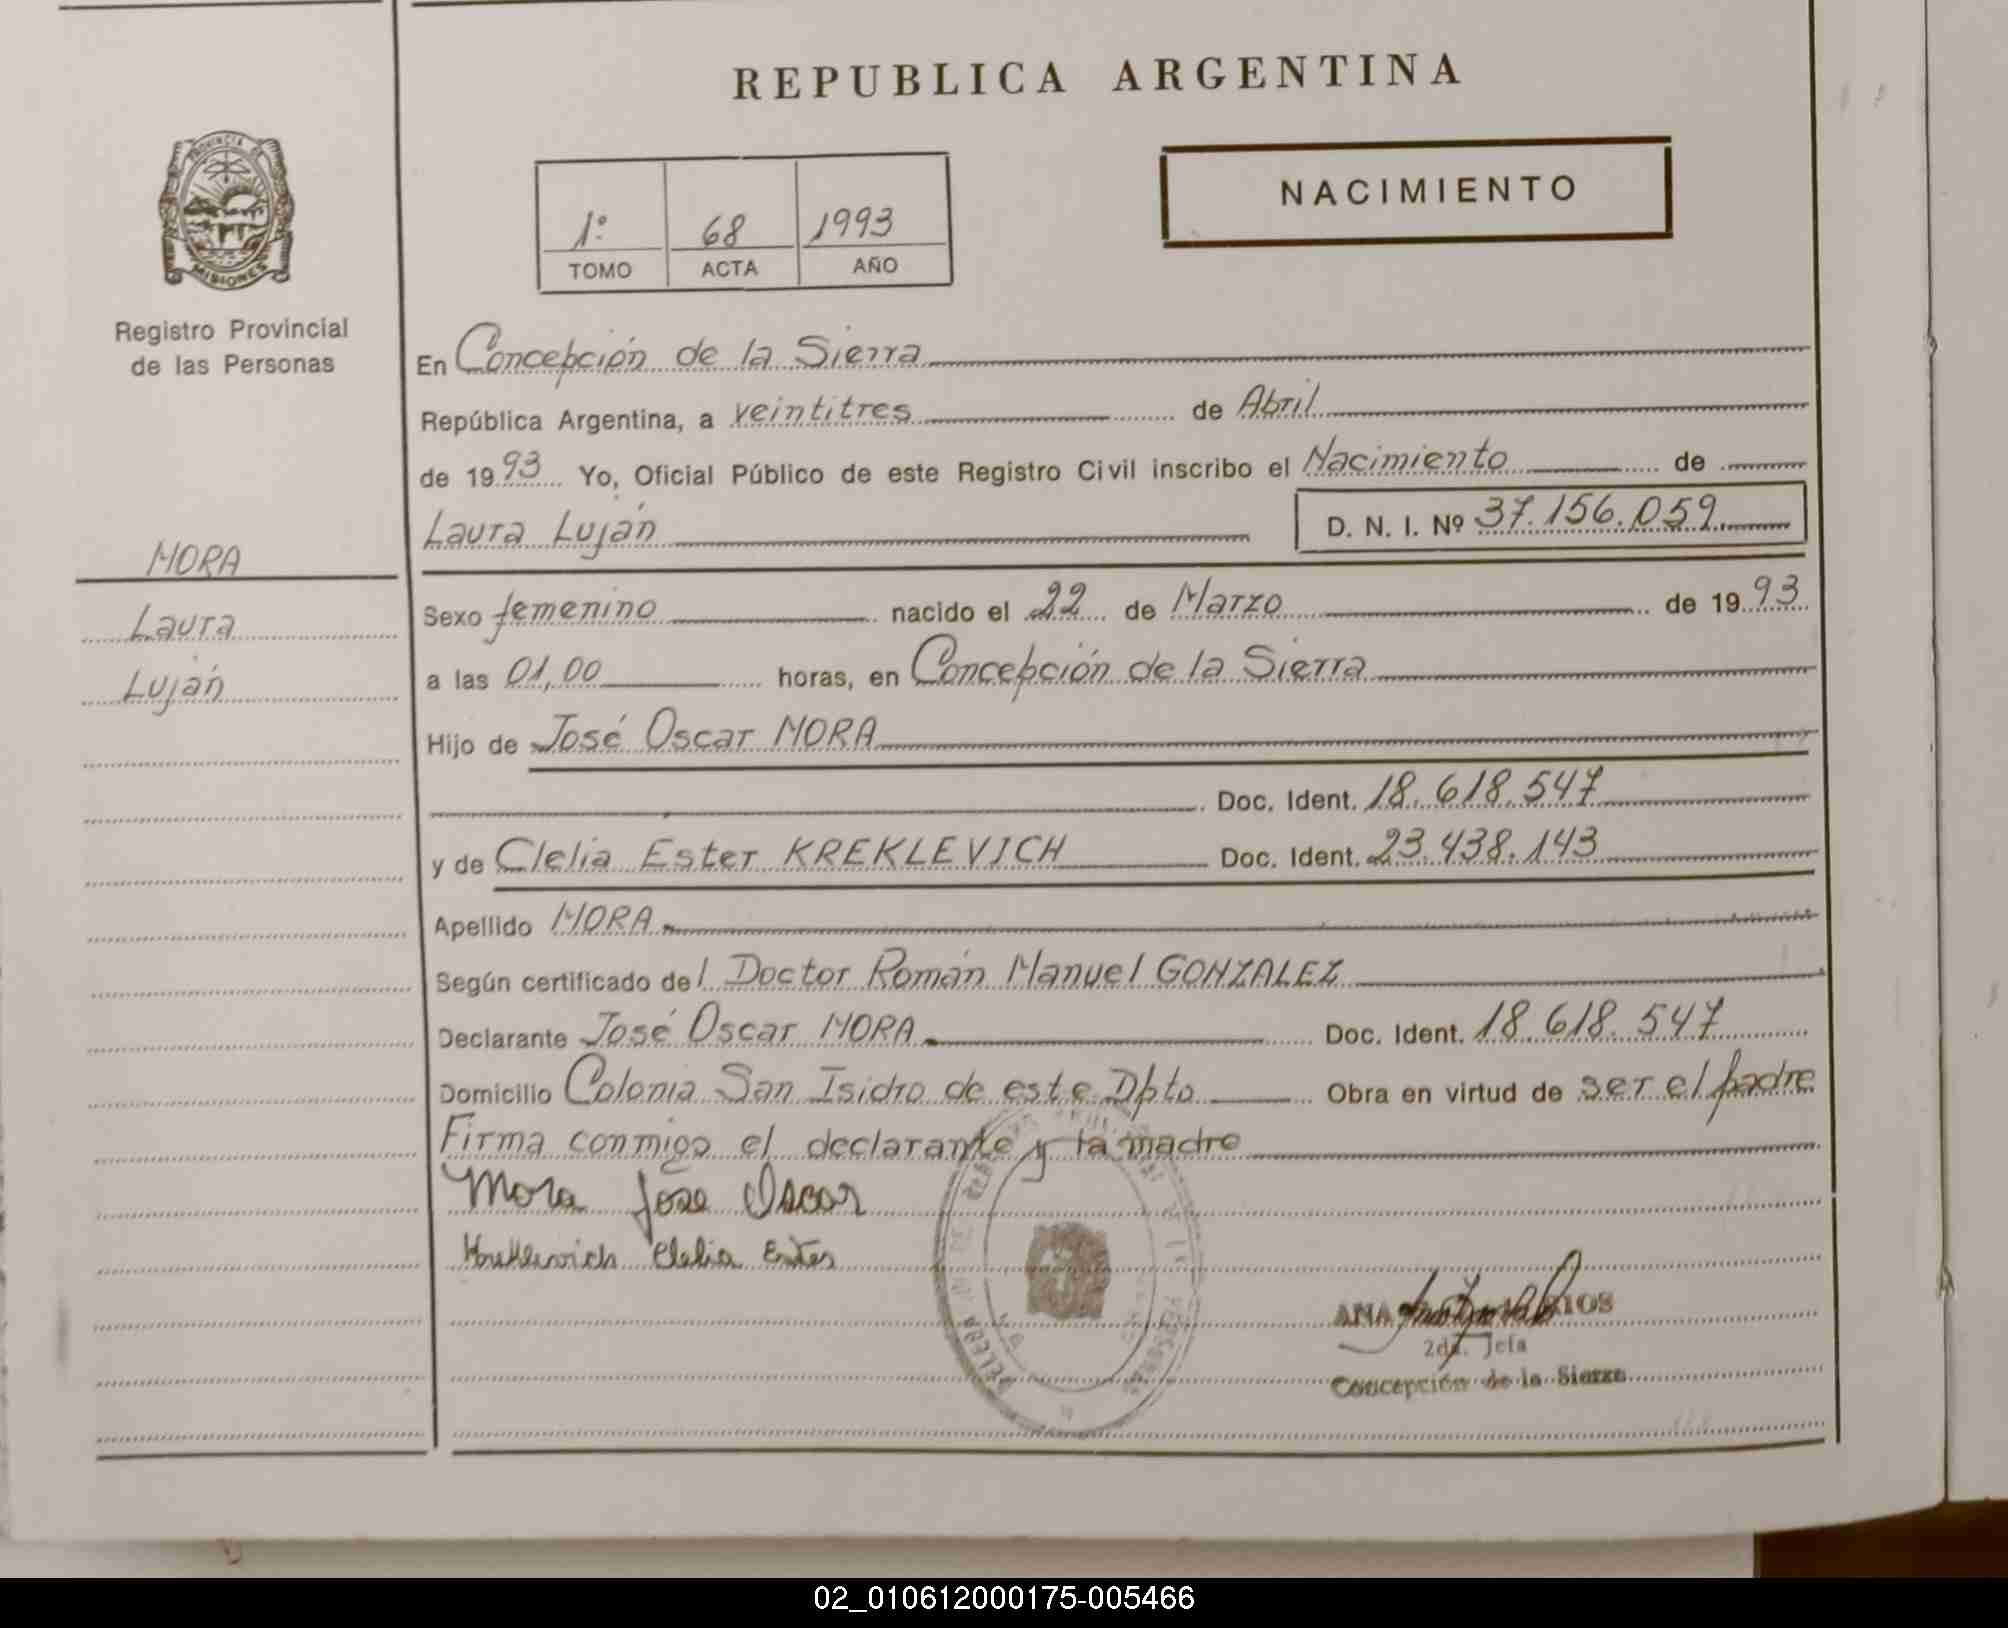 REPUBLICA ARGENTINA
NACIMIENTO
1º 68 1993
TOMO ACTA AÑO
PROVINCIA DE
MISIONES
Registro Provincial
de las Personas
MORA
Laura
Luján
En Concepción de la Sierra
República Argentina, a veintitres de Abril
de 1993 Yo, Oficial Público de este Registro Civil inscribo el Nacimiento de
Laura Luján D. N. I. Nº 37.156.059
Sexo femenino nacido el 22 de Marzo de 1993
a las 01,00 horas, en Concepción de la Sierra
Hijo de José Oscar MORA
Doc. Ident. 18.618.547
y de Clelia Ester KREKLEVICH Doc. Ident. 23.438.143
Apellido MORA
Según certificado del Doctor Román Manuel GONZALEZ
Declarante José Oscar MORA Doc. Ident. 18.618.547
Domicilio Colonia San Isidro de este Dpto Obra en virtud de ser el padre
Firma conmigo el declarante y la madre
Mora Jose Oscar
Kreklevich Clelia Ester
ANA RIOS
2da. Jefa
Concepción de la Sierra
02_010612000175-005466